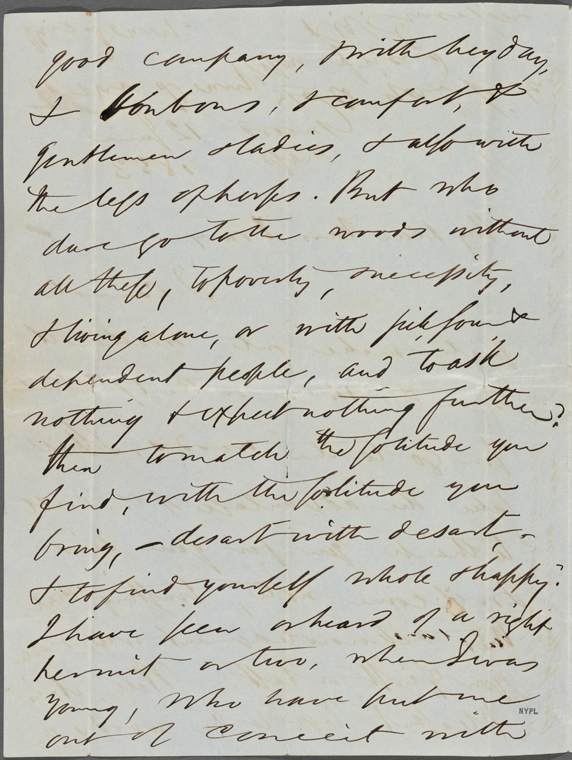 good company, & with heyday,
& bonbons, & comfort, &
gentlemen & ladies, & also with
the legs of horses. But who
dare go to the woods without
all these, to poverty, & necessity,
& living alone, or with sick sour &
dependent people, and to ask
nothing & expect nothing further?
then to match the solitude you
find, with the solitude you
bring, — desart with desart, —
& to find yourself whole & happy?
I have seen or heard of a right
hermit or two, when I was
young, who have put me
out of conceit with
NYPL